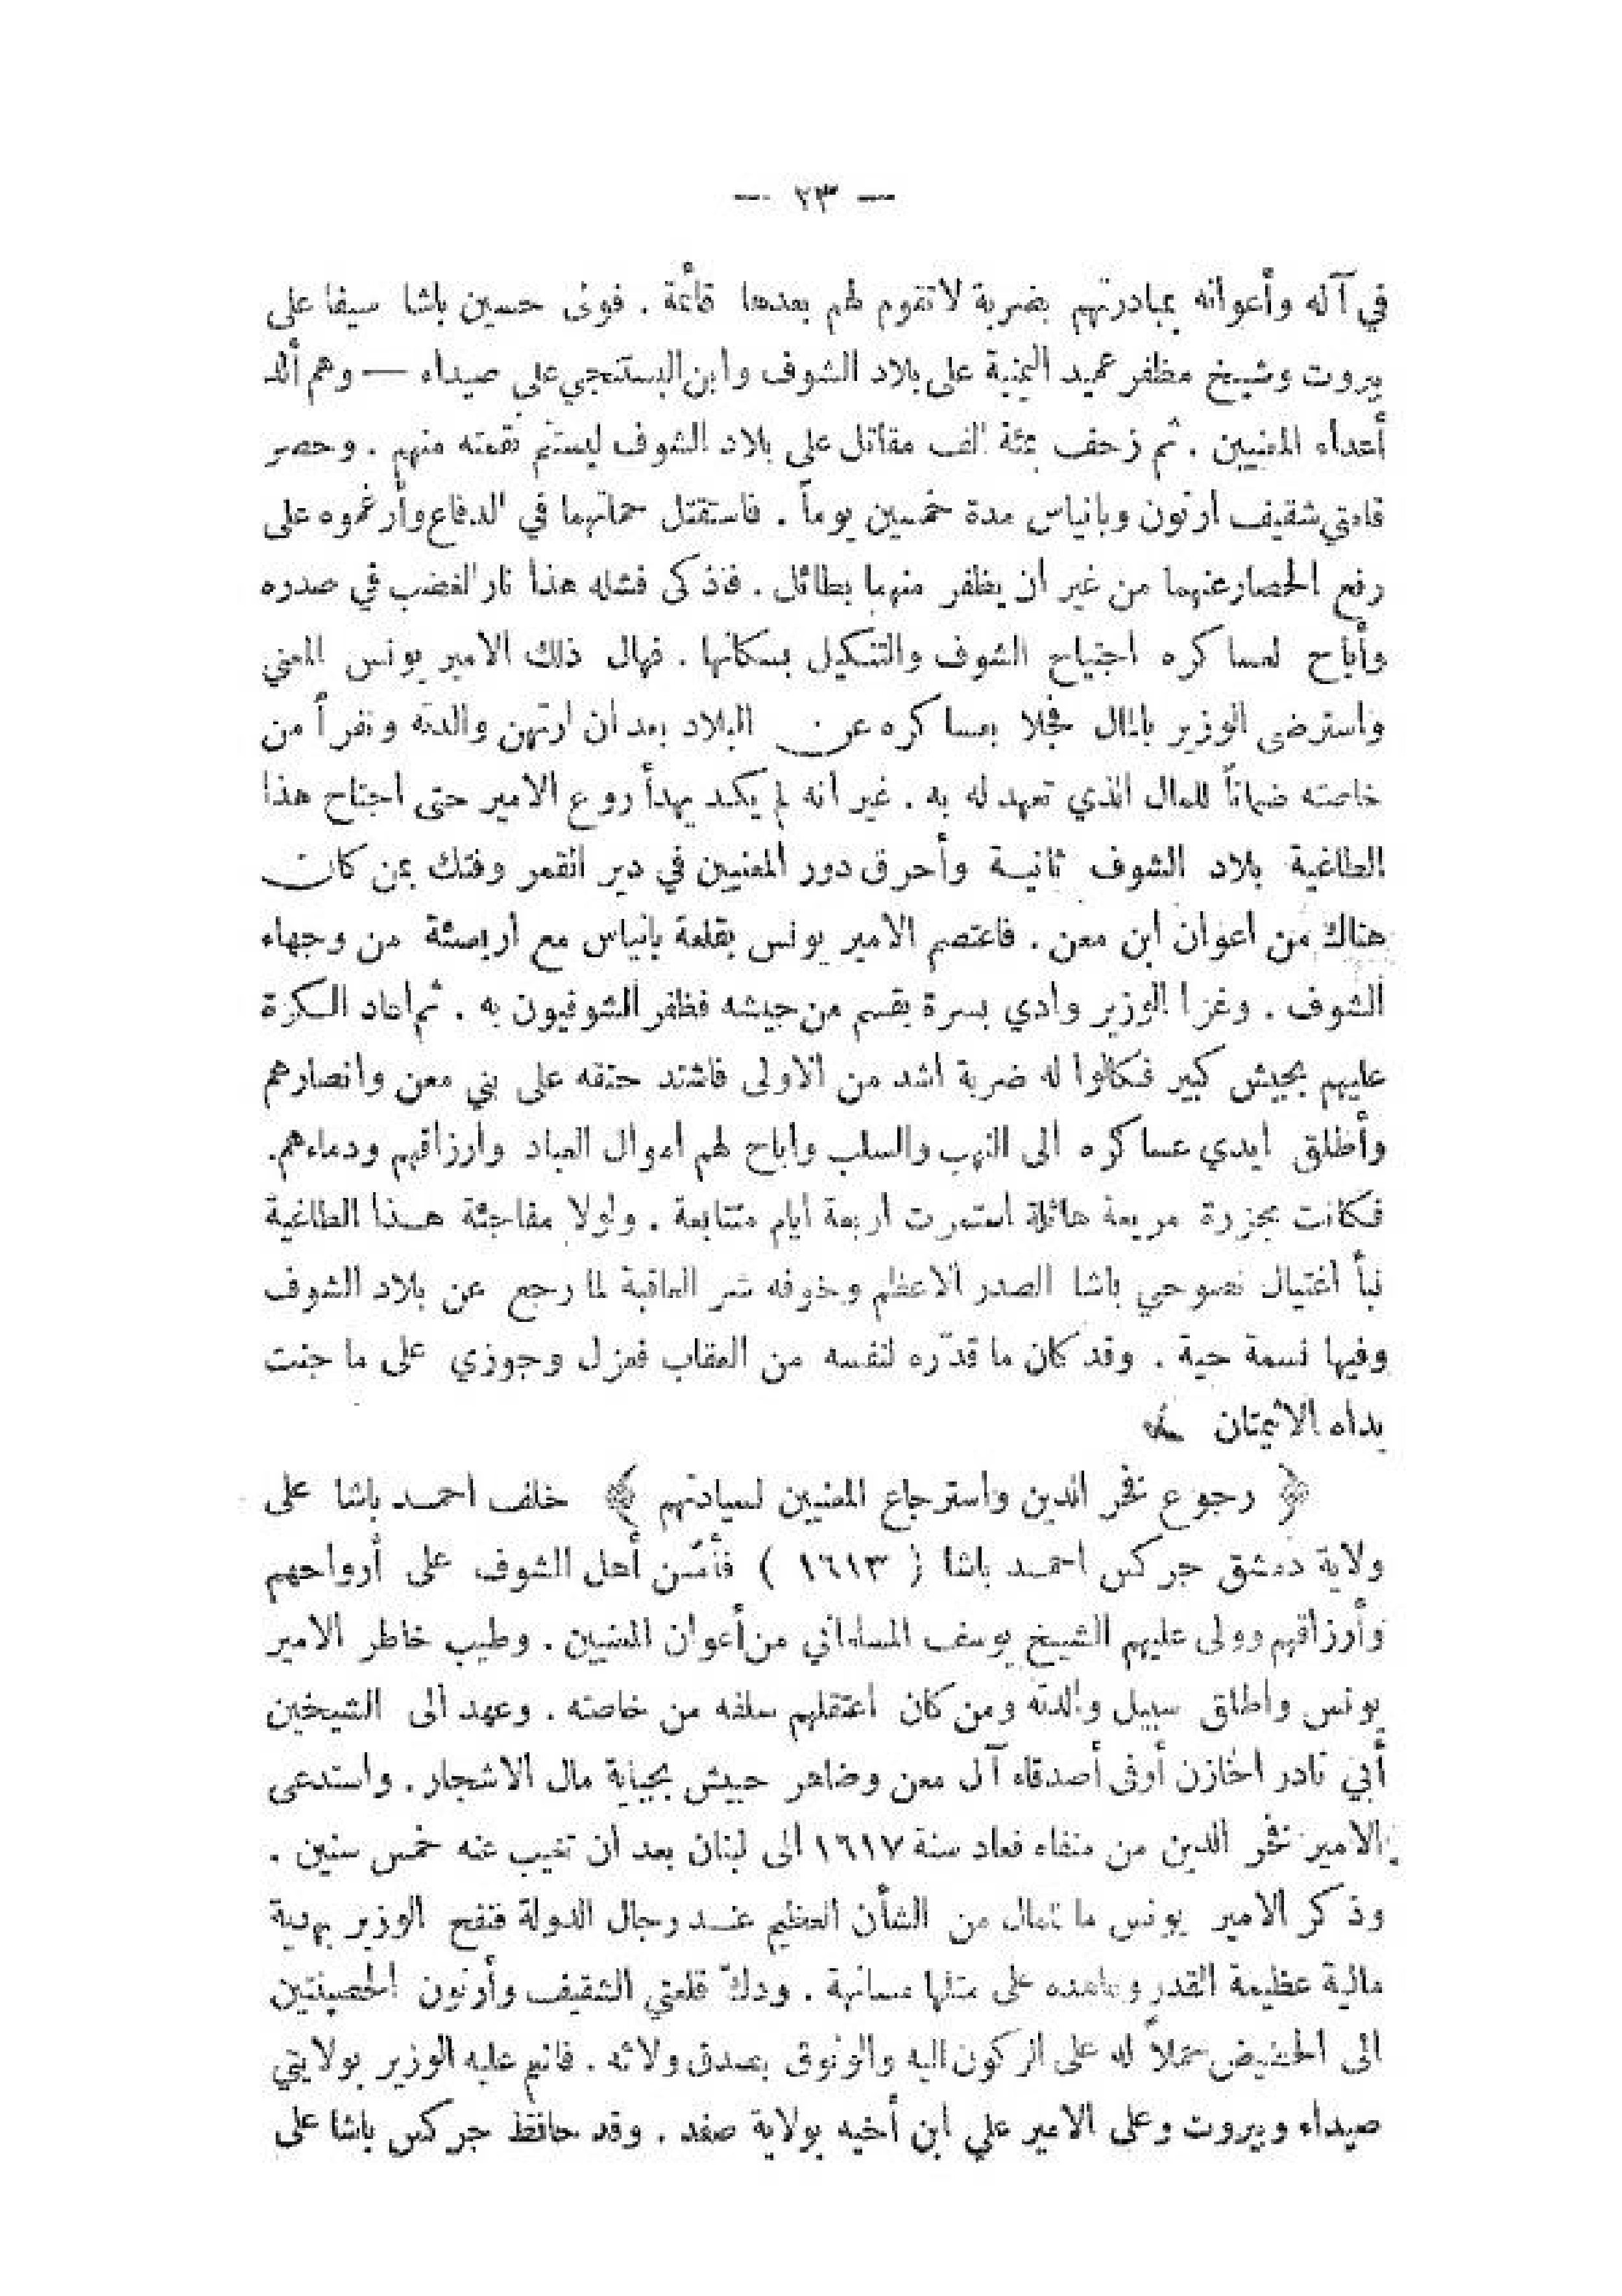 — ٢٣ —
في آله وأعوانه بمبادرتهم بضربة لا تقوم لهم بعدها قائمة . فولى حسين باشا سيفا على
بيروت وشيخ مظفر عميد اليمنية على بلاد الشوف وابن البستنجي على صيداء — وهم ألد
أعداء المعنيين . ثم زحف بمئة الف مقاتل على بلاد الشوف ليستتم نقمته منهم . وحصر
قلعتي شقيف ارنون وبانياس مدة خمسين يوماً . فاستقتل حماتهما في الدفاع وأرغموه على
رفع الحصار عنهما من غير ان يظفر منهما بطائل . فذكى فشله هذا نار الغضب في صدره
وأباح لعساكره اجتياح الشوف والتنكيل بسكانها . فهال ذلك الامير يونس المعني
واسترضى الوزير بالمال فجلا بعساكره عن البلاد بعد ان ارتهن والدته ونفراً من
خاصته ضماناً للمال الذي تعهد له به . غير انه لم يكد يهدأ روع الامير حتى اجتاح هذا
الطاغية بلاد الشوف ثانيـة وأحرق دور المعنيين في دير القمر وفتك بمن كان
هناك من اعوان ابن معن . فاعتصم الامير يونس بقلعة بانياس مع اربعمئة من وجهاء
الشوف . وغزا الوزير وادي بسرة بقسم من جيشه فظفر الشوفيون به . ثم اعاد الـكرة
عليهم بجيش كبير فـكالوا له ضربة اشد من الاولى فاشتد حنقه على بني معن وانصارهم
وأطلق ايدي عساكره الى النهب والسلب واباح لهم اموال العباد وارزاقهم ودماءهم.
فـكانت مجزرة مريعة هائلة استمرت اربعة ايام متتابعة . ولولا مفاجئة هـذا الطاغية
نبأ اغتيال نصوحي باشا الصدر الاعظم وخوفه شر العاقبة لما رجع عن بلاد الشوف
وفيها نسمة حية . وقد كان ما قدّره لنفسه من العقاب فعزل وجوزي على ما جنت
يداه الاثيمتان
﴿ رجوع فخر الدين واسترجاع المعنيين لسيادتهم ﴾ خلف احمـد باشا على
ولاية دمشق جركس احمـد باشا ( ١٦١٣ ) فأمّـن أهل الشوف على أرواحهم
وأرزاقهم وولى عليهم الشيخ يوسف المسلماني من أعوان المعنيين . وطيب خاطر الامير
يونس واطلق سبيل والدته ومن كان اعتقلهم سلفه من خاصته . وعهد الى الشيخين
أبي نادر الخازن أوفى أصدقاء آل معن وضاهر حبيش بجباية مال الاشجار . واستدعى
الامير فخر الدين من منفاه فعاد سنة ١٦١٧ الى لبنان بعد ان تغيب عنه خمس سنين .
وذكر الامير يونس ما للمال من الشأن العظيم عنـد رجال الدولة فنفح الوزير بهدية
مالية عظيمة القدر وعاهده على مثلها مسانهة . ودكّ قلعتي الشقيف وأرنون الحصينتين
الى الحضيض حملاً له على الركون اليه والوثوق بصدق ولائه . فانعم عليه الوزير بولايتي
صيداء وبيروت وعلى الامير علي ابن أخيه بولاية صفد . وقد حافظ جركس باشا على